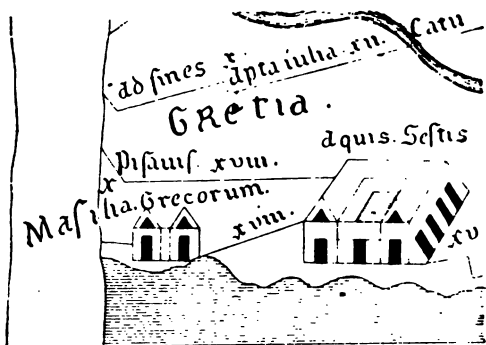 Catu
ad fines x apta iulia xii.
GReTIa.
aquis. Sestis
pisavis xviii.
x
Masilia. Grecorum.
xviii.
xv